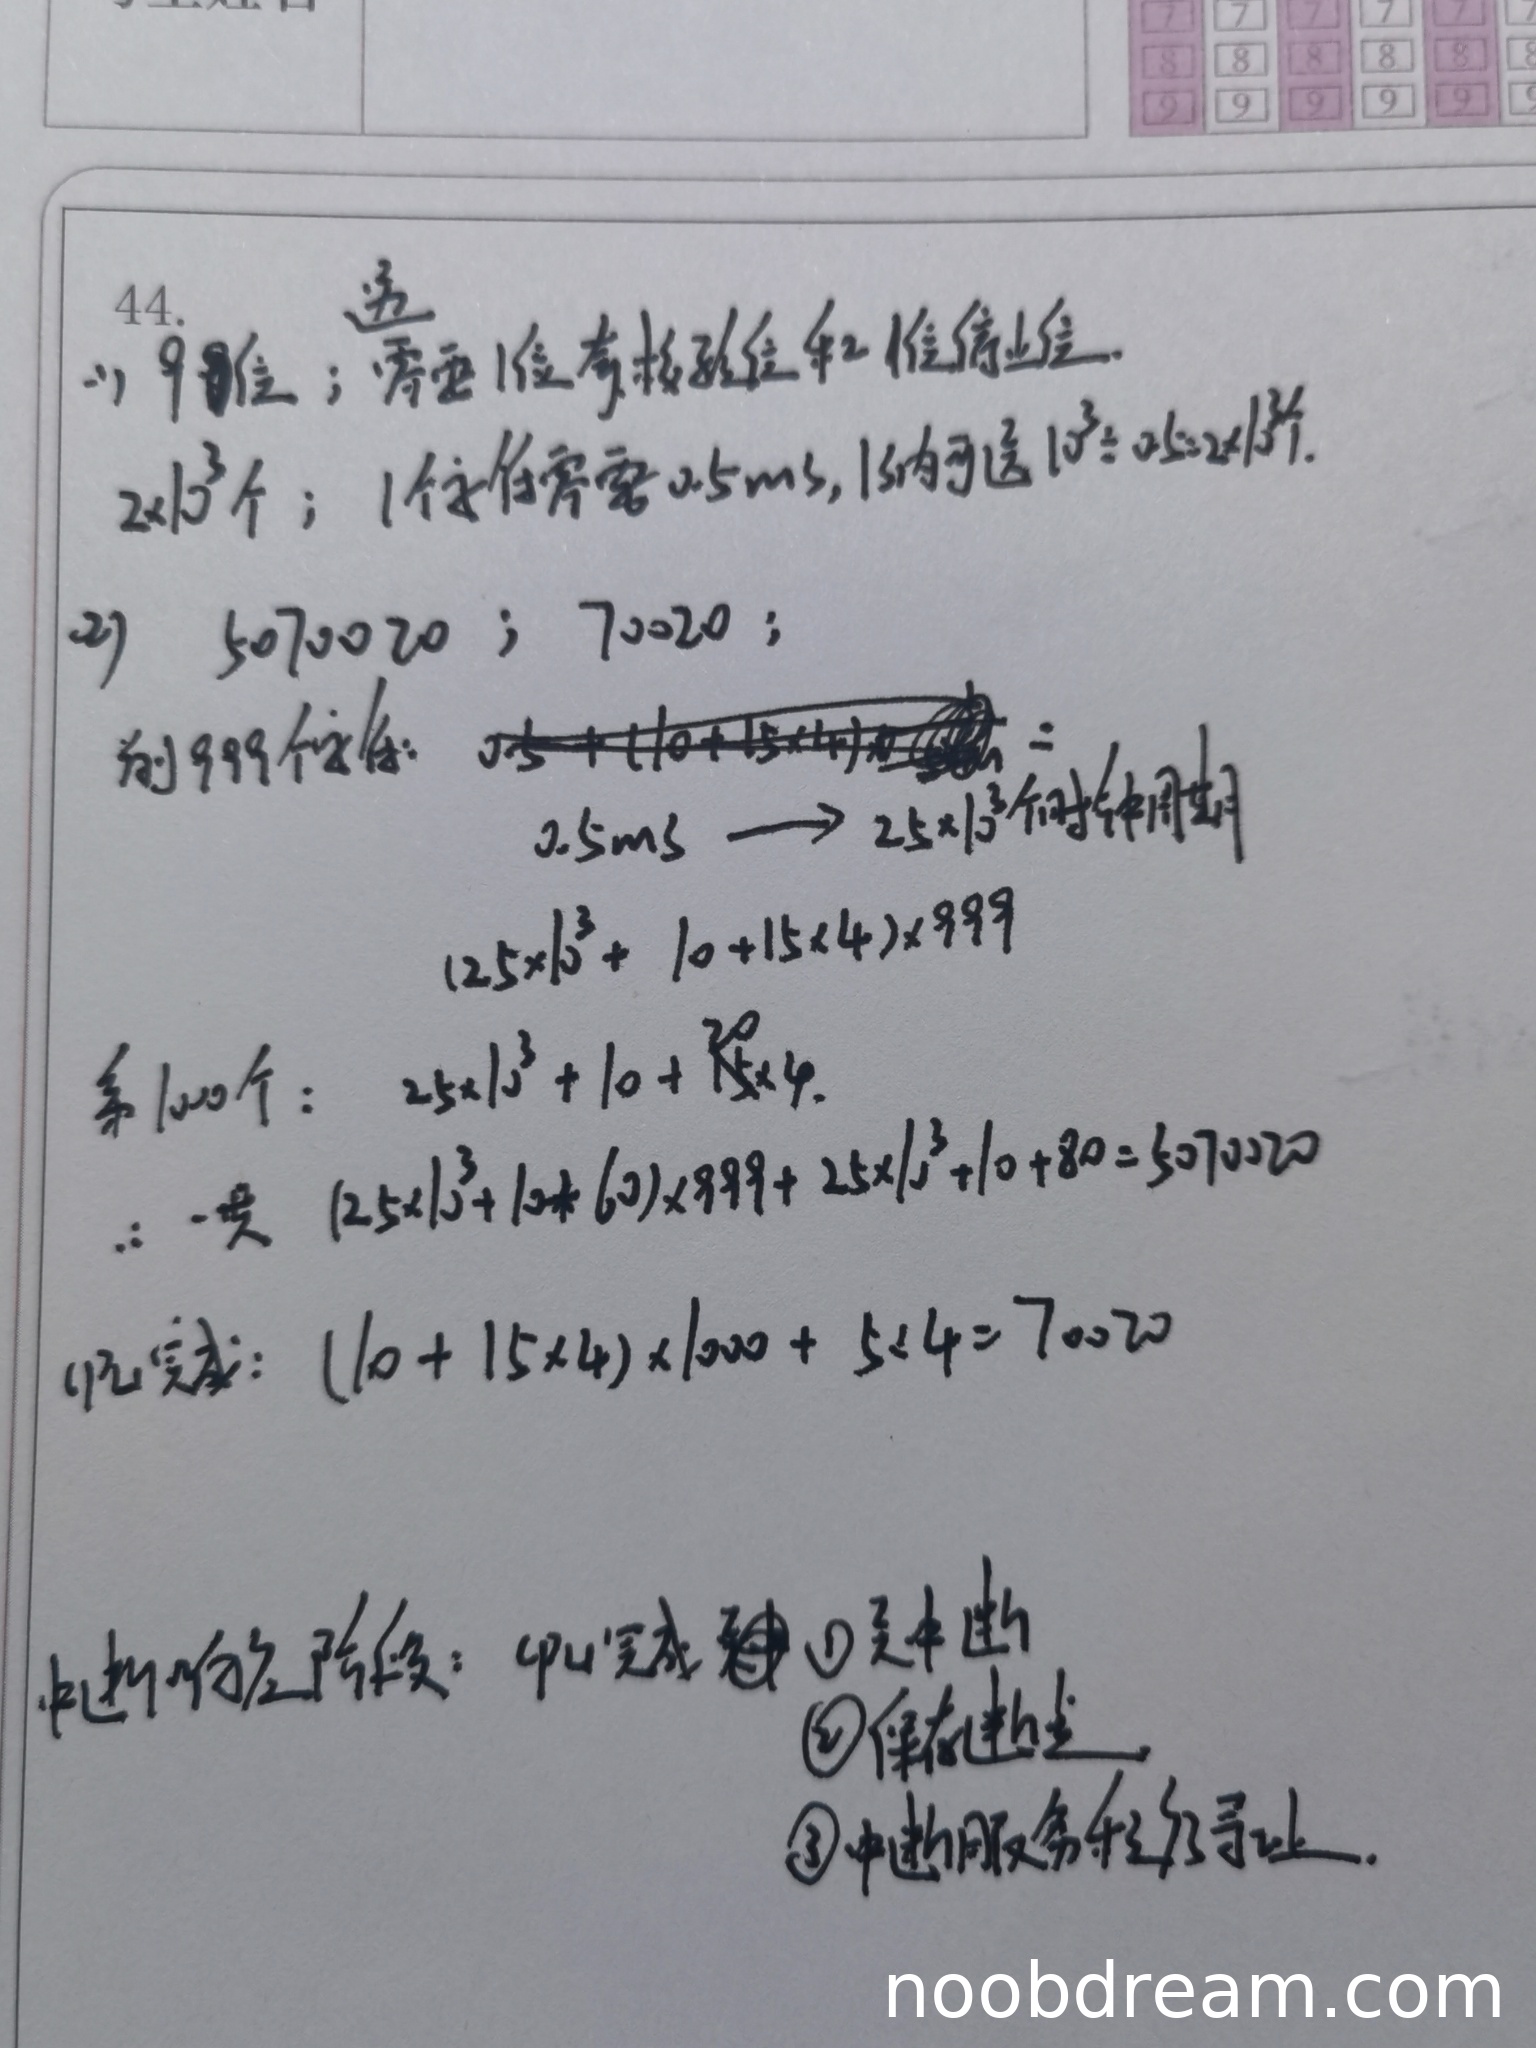 7 7 7 7 7
8 8 8 8 8 8
9 9 9 9 9 9
44.
另
(1) 9位；需要1位奇校验位和1位停止位.
2×10³个；1个字符需要0.5ms, 1s内可送10³÷0.5=2×10³个.
(2) 5070020；70020；
前999个字符： =
0.5ms → 25×10³个时钟周期
(25×10³+ 10+15×4)×999
第1000个： 25×10³+10+20×4.
∴ 一共 (25×10³+10+60)×999+25×10³+10+80=5070020
CPU完成：(10+15×4)×1000+5×4=70020
中断响应阶段：CPU完成 ①关中断
②保存断点
③中断服务程序寻址.
noobdream.com